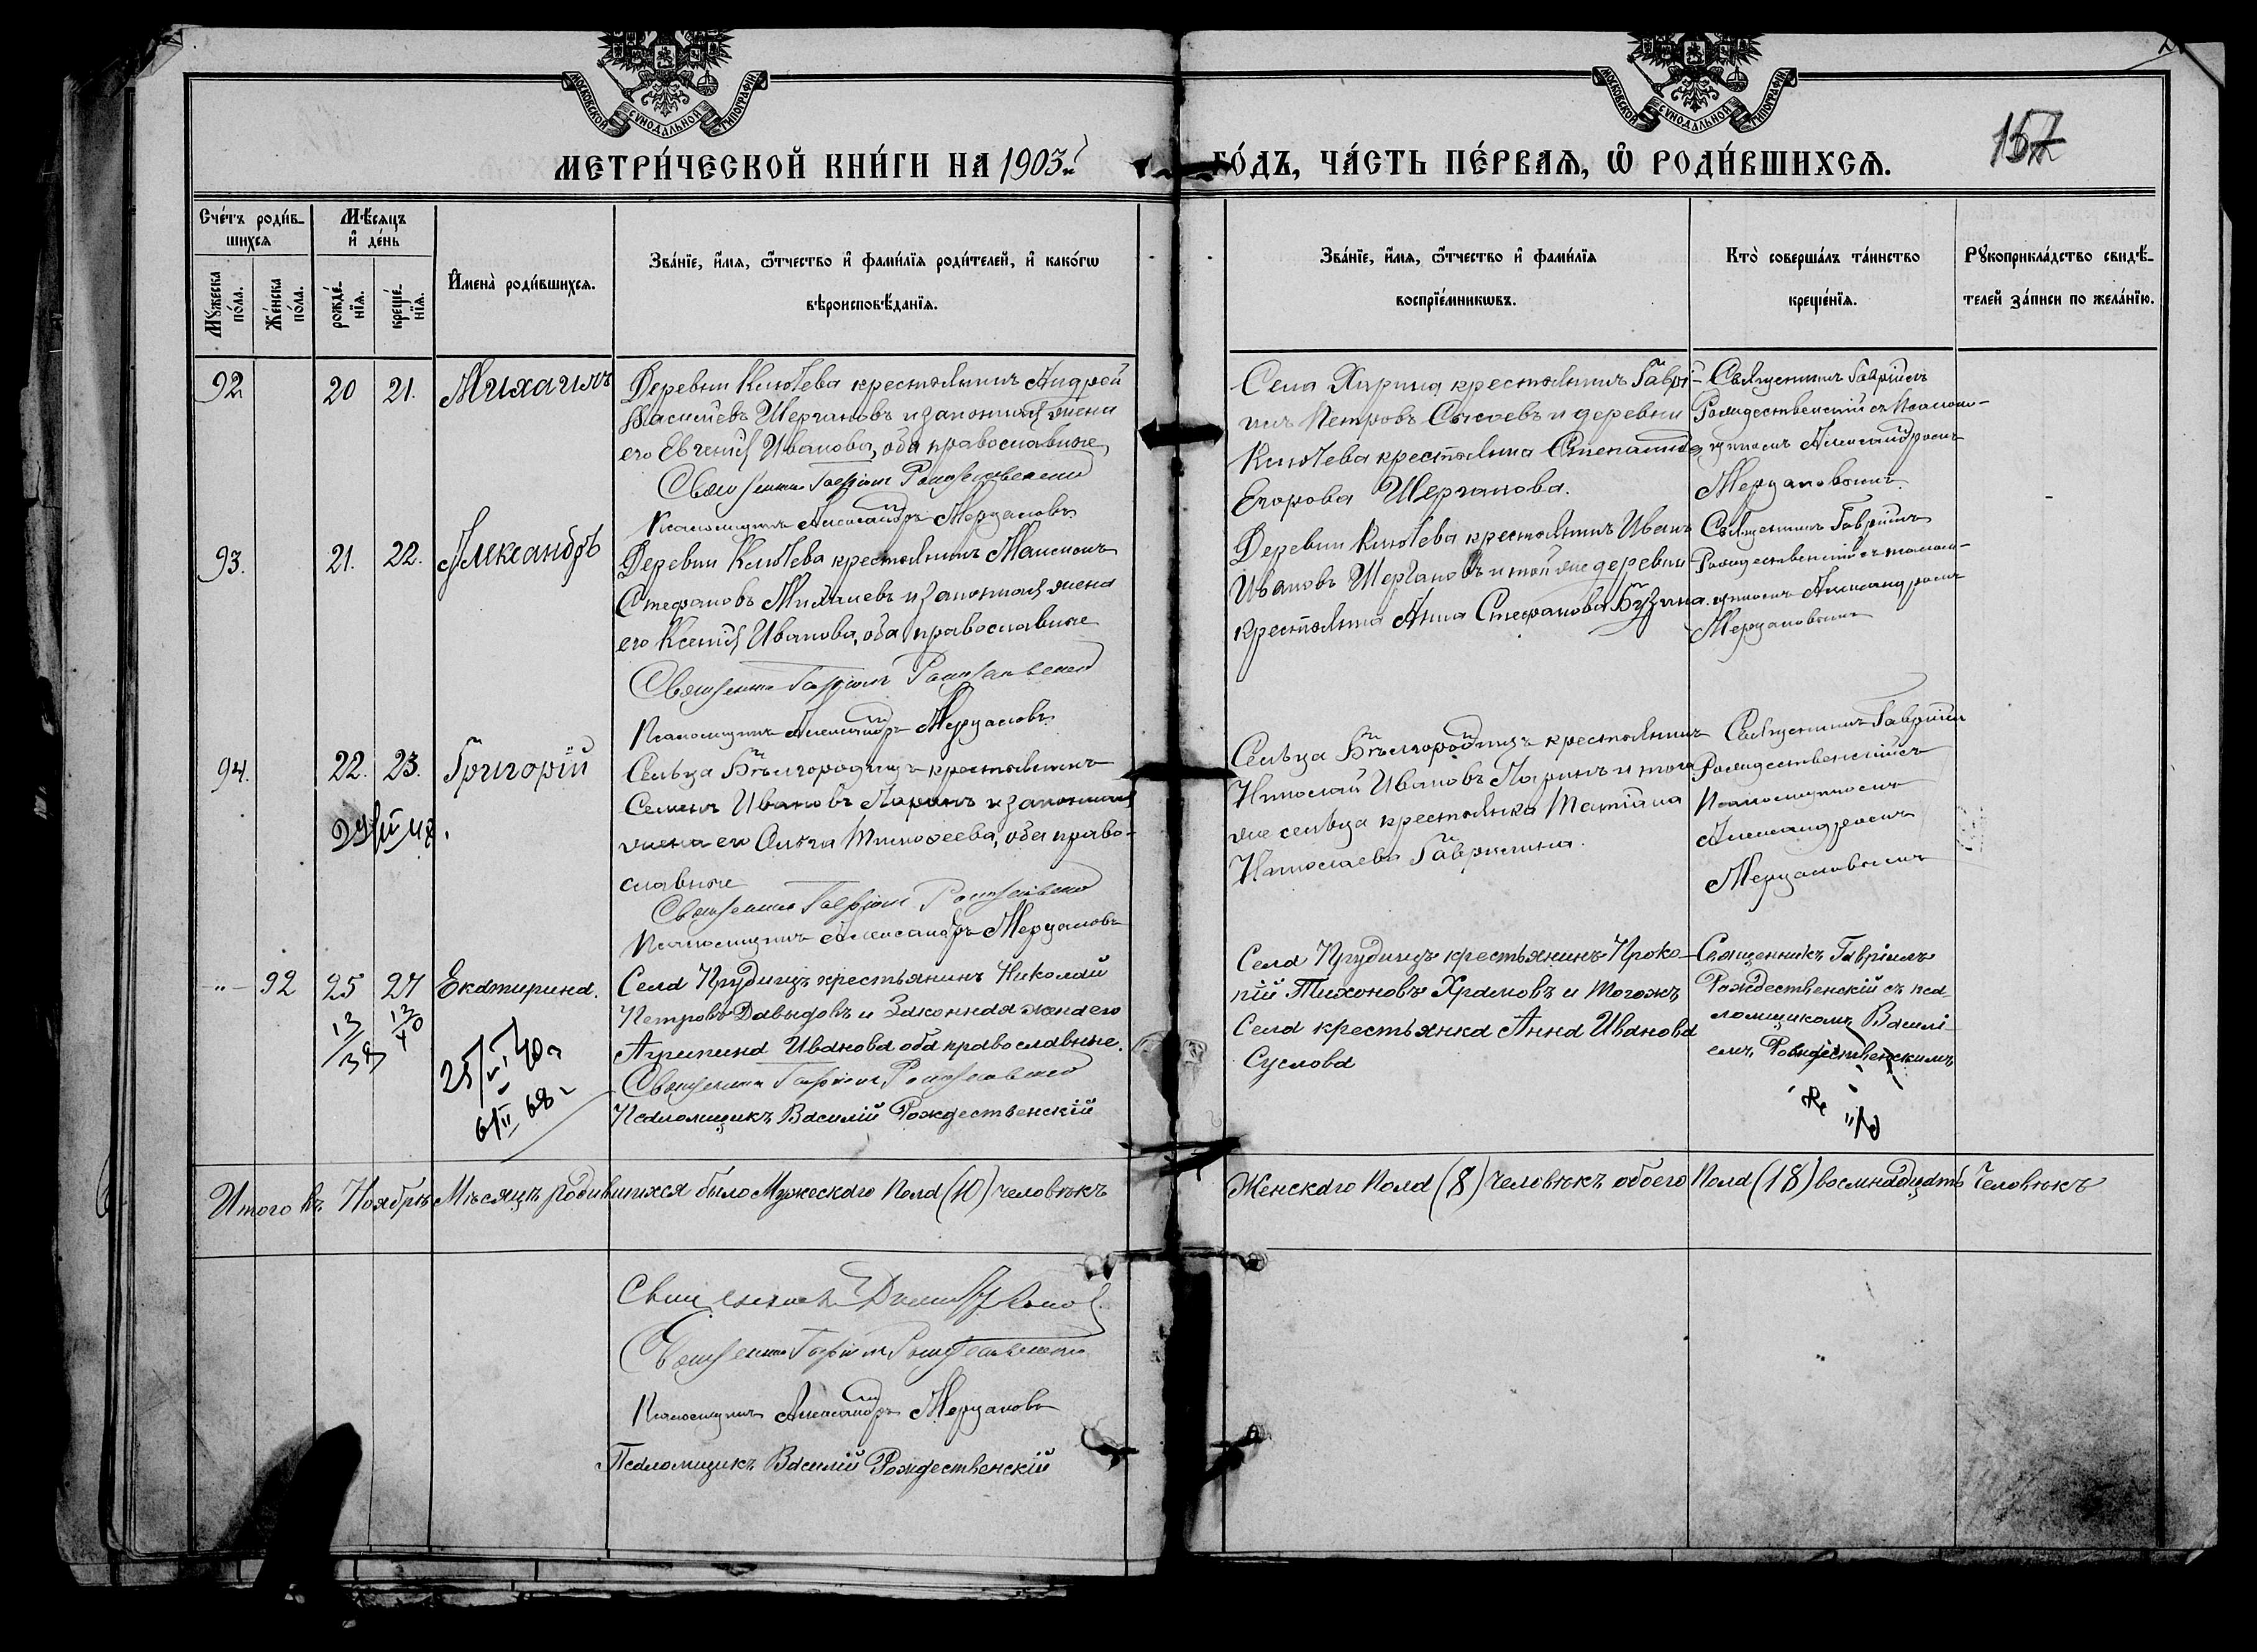 МОСКОВСКОЙ СѴНОДАЛЬНОЙ ТИПОГРАФІИ
МОСКОВСКОЙ СѴНОДАЛЬНОЙ ТИПОГРАФІИ
157
МЕТРИ́ЧЕСКОЙ КНИ́ГИ НА 1903 г. ГО́ДЪ, ЧА́СТЬ ПЕ́РВАЯ, Ѡ РОДИ́ВШИХСЯ.
Сче́тъ роди́в-
шихся
Мѣ́сяцъ
и де́нь
Му́жеска по́ла.
Же́нска по́ла.
рожде́-
нїя.
креще́-
нїя.
Имена̀ роди́вшихся.
Зва́нїе, и́мя, ѻ҆́тчество и фами́лїя роди́телей, и како́гѡ
вѣроисповѣ́данїя.
Зва́нїе, и́мя, ѻ҆́тчество и фами́лїя
воспрїе́мникѡвъ.
Кто̀ соверша́лъ та́инство
креще́нїя.
Рꙋкоприкла́дство свидѣ́-
телей за́писи по жела́нїю.
92
20 21.
Михаилъ
Деревни Ключева крестьянинъ Андрей
Васильевъ Шергановъ и законная жена
его Евгенія Иванова, оба православные
Священникъ Гавріилъ Рождественскій
Псаломщикъ Александръ Мерцаловъ
Села Хирина крестьянинъ Гаврі-
илъ Петровъ Сысоевъ и деревни
Ключева крестьянка Степанида
Егорова Шерганова.
Священникъ Гавріилъ
Рождественскій съ псалом-
щикомъ Александромъ
Мерцаловымъ
93.
21. 22.
Александръ
Деревни Ключева крестьянинъ Максимъ
Стефановъ Михалевъ и законная жена
его Ксенія Иванова, оба православные
Священникъ Гавріилъ Рождественскій
Псаломщикъ Александръ Мерцаловъ
Деревни Ключева крестьянинъ Иванъ
Ивановъ Шергановъ и той же деревни
крестьянка Анна Стефанова Бузина.
Священникъ Гавріилъ
Рождественскій съ псалом-
щикомъ Александромъ
Мерцаловымъ
94.
22. 23.
Григорій
Сельца Бѣлгородицъ крестьянинъ
Семенъ Ивановъ Ларинъ и законная
жена его Ольга Тимофеева, оба право-
славные
Священникъ Гавріилъ Рождественскій
Псаломщикъ Александръ Мерцаловъ
Сельца Бѣлгородицъ крестьянинъ
Николай Ивановъ Ларинъ и того
же сельца крестьянка Татіана
Николаева Гаврилина.
Священникъ Гавріилъ
Рождественскій съ
псаломщикомъ
Александромъ
Мерцаловымъ
-"- 92
25 27
Екатирина.
13/38
13/X 40
25/VI 40 г
6/II 68 г
Села Прудищъ крестьянинъ Николай
Петровъ Давыдовъ и Законная жена его
Агрипина Иванова оба православные.
Священникъ Гавріилъ Рождественскій
Псаломщикъ Василій Рождественскій
Села Прудищъ крестьянинъ Проко-
пій Тихоновъ Храмовъ и Тогожъ
Села крестьянка Анна Иванова
Суслова
Священникъ Гавріилъ
Рождественскій съ пса-
ломщикомъ Василі-
емъ Рождественскимъ
Итого въ Ноябрѣ Мѣсяцѣ родившихся было Мужескаго Пола (10) человѣкъ Женскаго Пола (8) Человѣкъ обоего Пола (18) восмнадцать Человѣкъ
Священникъ
Священникъ Гавріилъ Рождественскій
Псаломщикъ Александръ Мерцаловъ
Псаломщикъ Василій Рождественскій